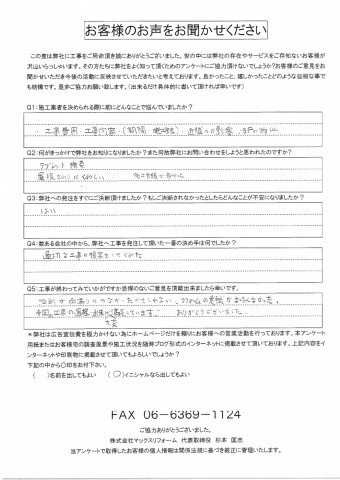 お客様のお声をお聞かせください
この度は弊社に工事をご用命頂き誠にありがとうございました。世の中には弊社の存在やサービスをご存知ないお客様が
沢山いらっしゃいます。その方たちに弊社をよく知って頂くためのアンケートにご協力頂けないでしょうか?お客様のご意見をお
聞かせいただき今後の活動に反映させていただきたいと考えております。良かったこと、嬉しかったことどのような些細な事で
も結構です。是非ご協力お願い致します。(出来るだけ具体的に書いて頂ければ幸いです)
Q1:施工業者を決められる際に前にどんなことで悩んでいましたか?
・工事費用・工事内容(期間
Q2:何がきっかけで弊社をお知りになりましたか?また何故弊社にお問い合わせをしようと思われたのですか?
タブレット検索
Q3:弊社への発注をすぐにご決断頂けましたか?もしご決断されなかったとしたらどんなことが不安になりましたか?
はい
Q4:数ある会社の中から、弊社へ工事を発注して頂いた一番の決め手は何でしたか?
適切な工事の提案をしてくれた
Q5:工事が終わってみていかがですか忌憚のないご意見を頂戴出来ましたら幸いです。
ありがとうございました。
※弊社は広告宣伝費を極力かけない為にホームページだけを頼りにお客様への営業活動を行っております。本アンケート
用紙またはお客様宅の調査風景や施工状況を随時ブログ形式のインターネットに掲載させて頂いております。上記内容をイ
ンターネットや印刷物に掲載させて頂いてもよろしいでしょうか?
下記の中から〇印をお付け下さい。
( )名前を出してもよい (〇)イニシャルなら出してもよい
FAX 06-6369-1124
ご協力ありがとうございました。
株式会社マックスリフォーム 代表取締役 杉本 匡志
当アンケートで取得したお客様の個人情報は関係法規に基づき厳正に管理いたします。